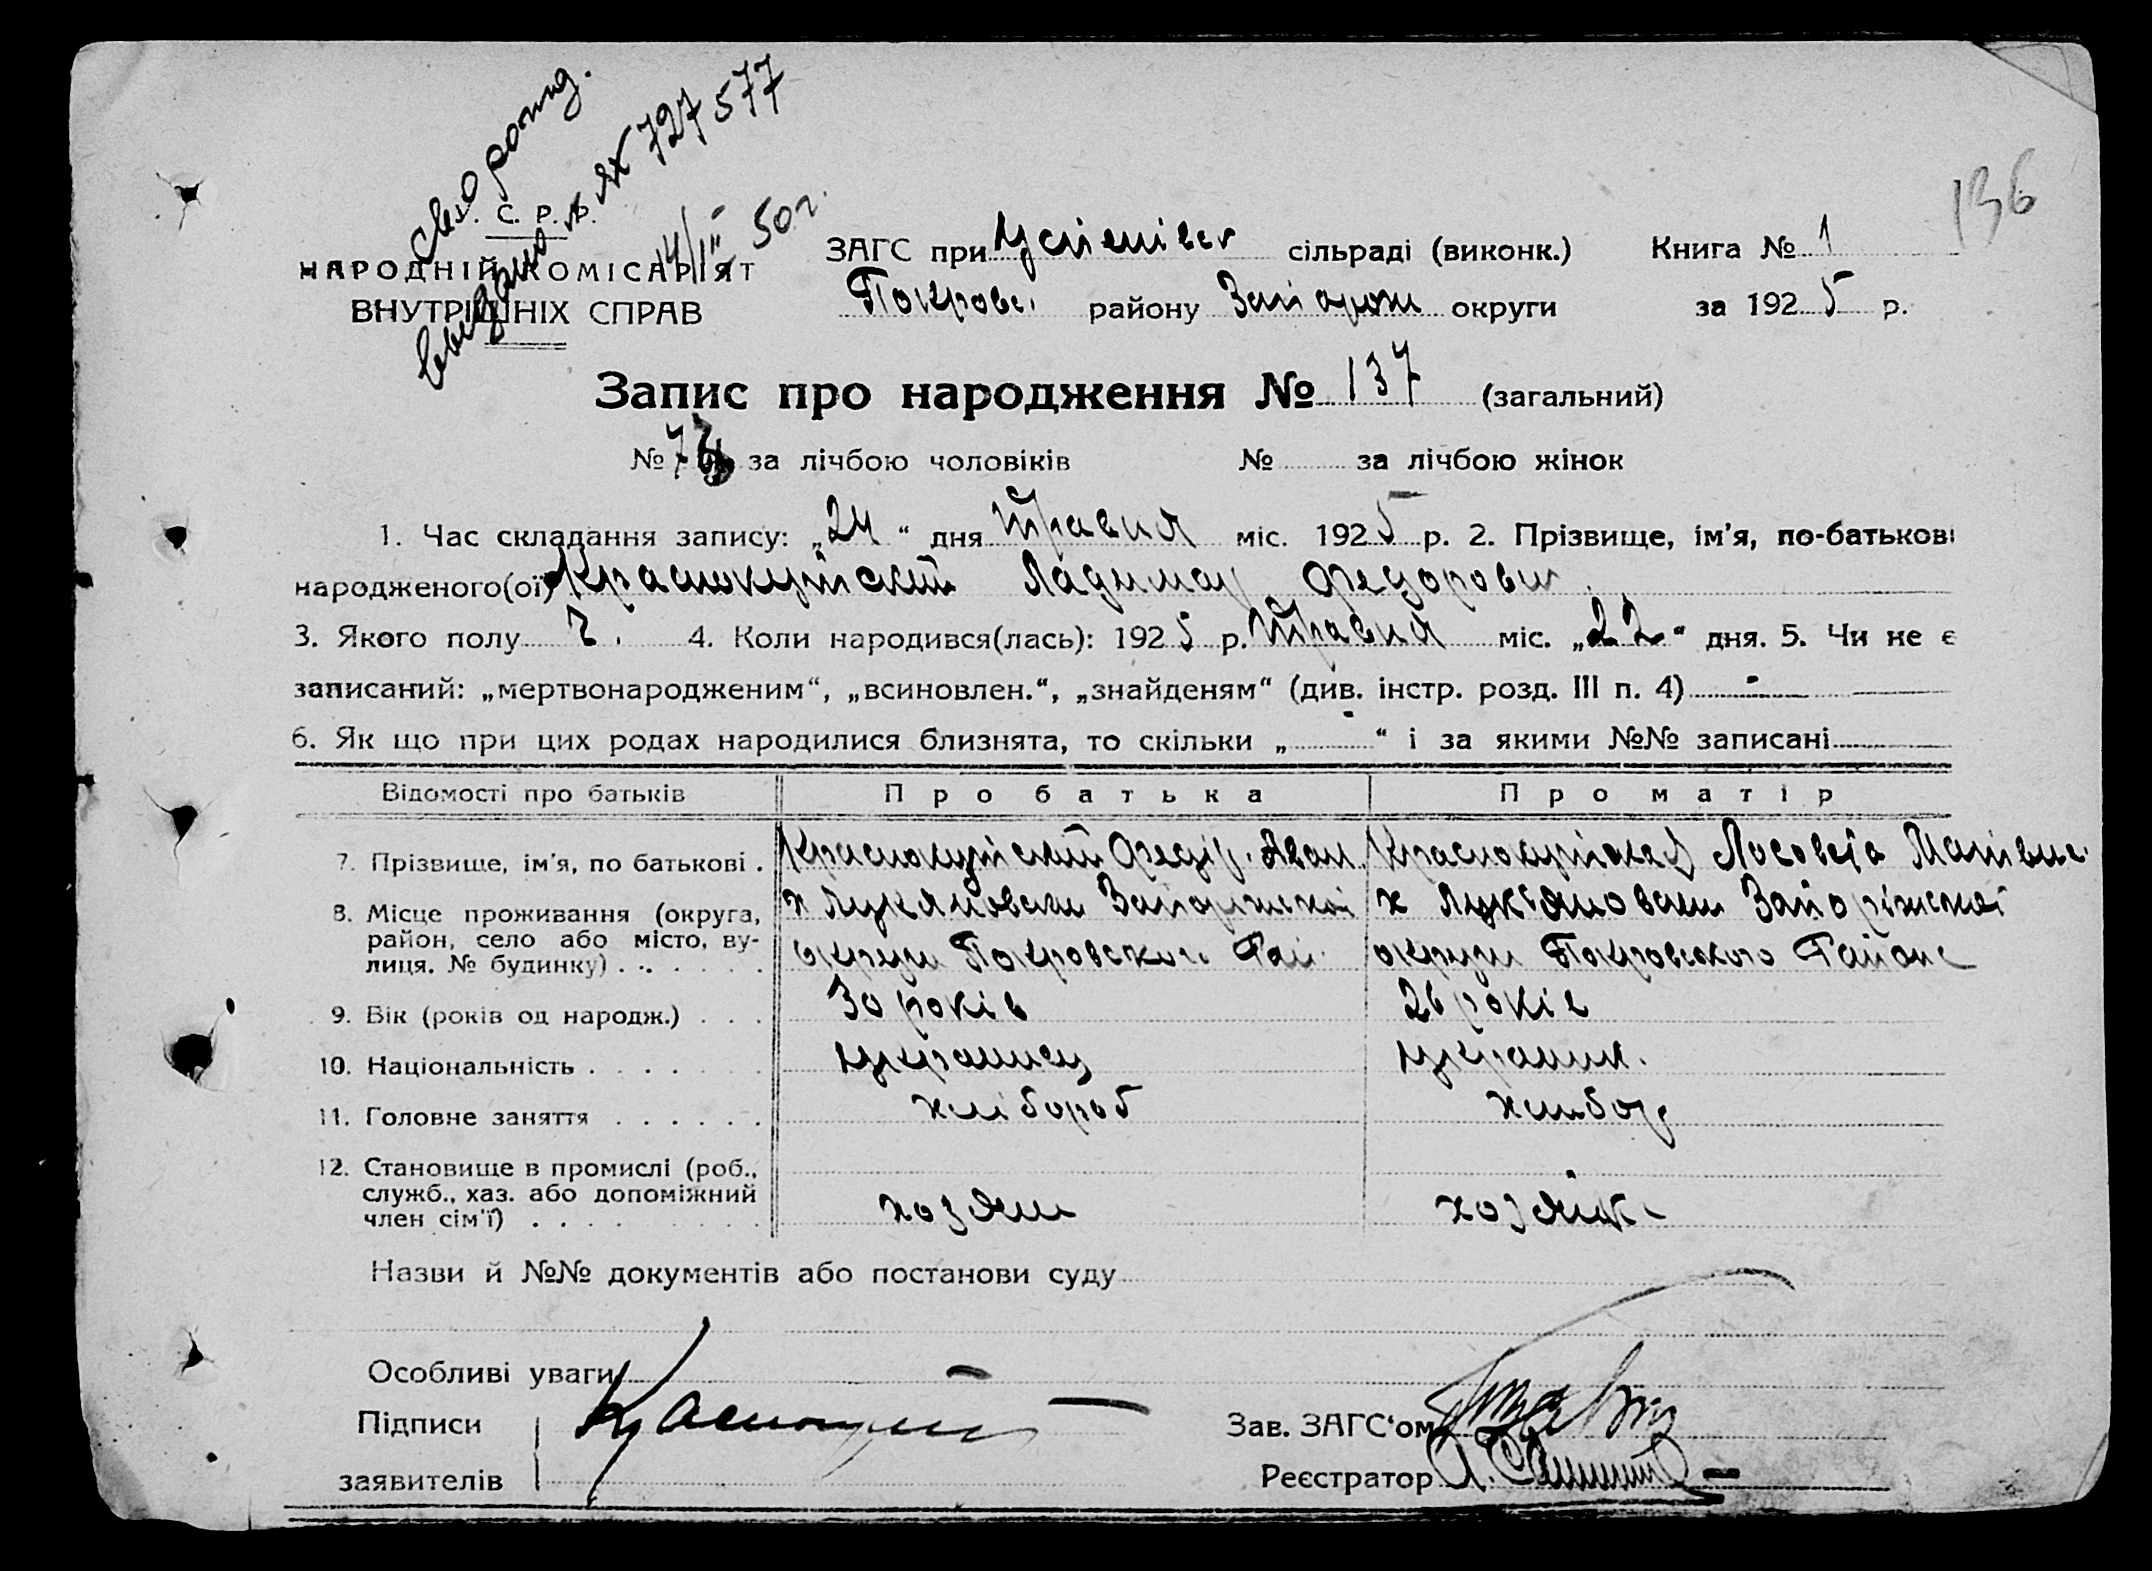 Св.о рожд.
выдано № ЯХ 727577
14/III 50 г.
136
С. Р. Р.
НАРОДНІЙ КОМІСАРІЯТ
ВНУТРІШНІХ СПРАВ
ЗАГС при Успенівск сільраді (виконк.) Книга № 1
Покровс. району Запорож округи за 1925 р.
Запис про народження № 137 (загальний)
№ 73 за лічбою чоловіків № за лічбою жінок
1. Час складання запису: „24“ дня Травня міс. 1925 р. 2. Прізвище, ім’я, по-батькові
народженого(ої) Краснокутский Ладимар Федорович
3. Якого полу ч. 4. Коли народився(лась): 1925 р. Травня міс. „22“ дня. 5. Чи не є
записаний: „мертвонародженим“, „всиновлен.“, „знайденям“ (див. інстр. розд. III п. 4) -
6. Як що при цих родах народилися близнята, то скільки „-“ і за якими №№ записані
Відомості про батьків Про батька Про матір
7. Прізвище, ім’я, по батькові . Краснокутский Федір. Иван. Краснокутска Матівис.
8. Місце проживання (округа, х Лукяновски Запоріжской х Лукіяновски Запоріжскоі
район, село або місто, ву- округи Покровского Рай. округи Покровського Району
лиця. № будинку) . . . . . .
9. Вік (років од народж.) . . . 30 років 26 років
10. Національність . . . . . . . украинец украин.
11. Головне заняття . . . . . . хлібороб хлибор
12. Становище в промислі (роб.,
служб., хаз. або допоміжний хозяин хозяйка
член сім’ї) . . . . . . . .
Назви й №№ документів або постанови суду
Особливі уваги -
Підписи Краснокутс Зав. ЗАГС‘ом
заявителів Реєстратор